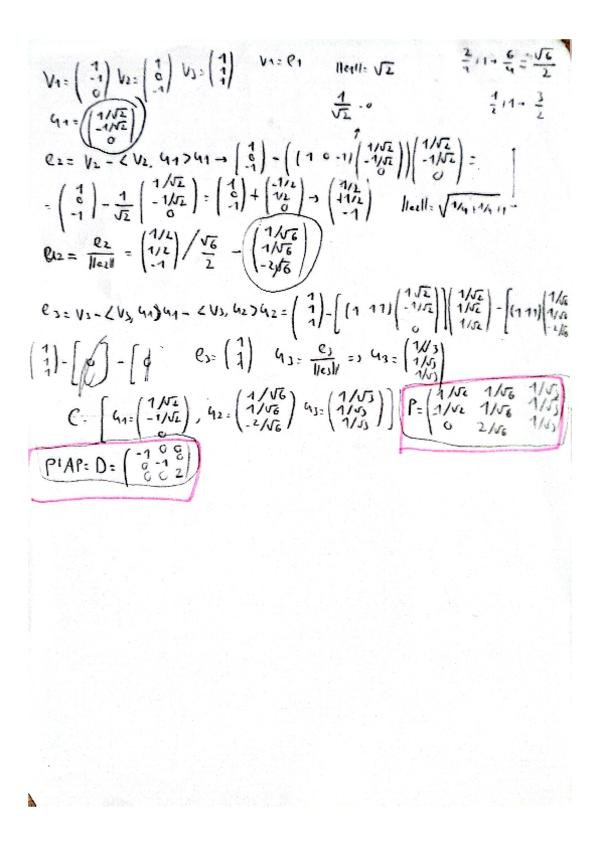 V1 = (1 -1 0) V2 = (1 0 -1) V3 = (1 1 1) V1 = e1 ||e1|| = √2
u1 = (1/√2 -1/√2 0)
e2 = V2 - <V2, u1> u1 → (1 0 -1) - ((1 0 -1) (1/√2 -1/√2 0)) (1/√2 -1/√2 0) =
= (1 0 -1) - 1/√2 (1/√2 -1/√2 0) = (1 0 -1) + (-1/2 1/2 0) → (1/2 +1/2 -1) ||e2|| = √1/4+1/4+1
u2 = e2/||e2|| = (1/2 1/2 -1) / √6/2 - (1/√6 1/√6 -2/√6)
e3 = V3 - <V3, u1> u1 - <V3, u2> u2 = (1 1 1) - [(1 1 1) (1/√2 -1/√2 0)] (1/√2 1/√2 1/√2) - [(1 1 1) (1/√6 1/√6 -2/√6)
(1 1 1) - [0] - [0 e3 = (1 1 1) u3 = e3/||e3|| => u3 = (1/√3 1/√3 1/√3)
C = [u1 = (1/√2 -1/√2 0), u2 = (1/√6 1/√6 -2/√6) u3 = (1/√3 1/√3 1/√3)] P = (1/√2 1/√6 1/√3 -1/√2 1/√6 1/√3 0 2/√6 1/√3)
P'AP = D = (-1 0 0 0 -1 0 0 0 2)